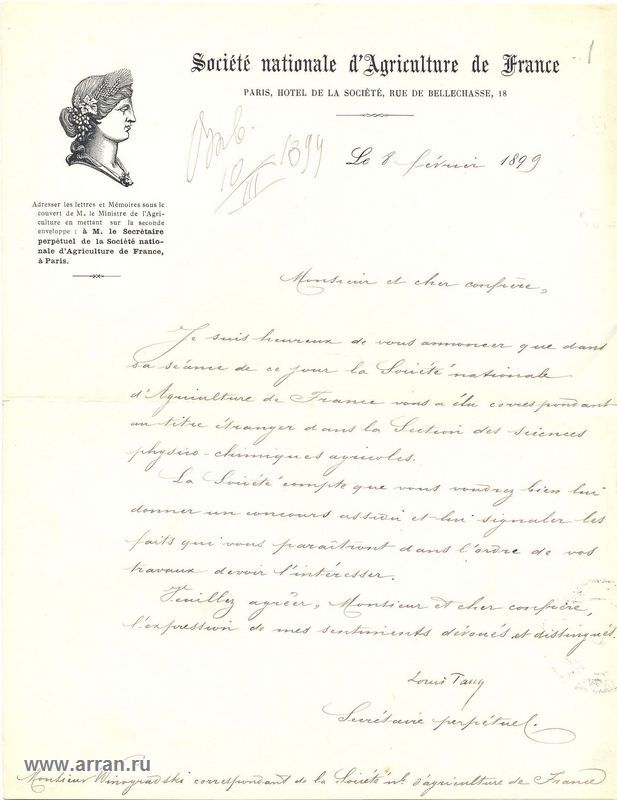 Société nationale d'Agriculture de France
PARIS, HOTEL DE LA SOCIÉTÉ, RUE DE BELLECHASSE, 18
1
Le 8 février 1899
10/III 1899
Adresser les lettres et Mémoires sous le
couvert de M. le Ministre de l'Agri-
culture en mettant sur la seconde
enveloppe : à M. le Secrétaire
perpétuel de la Société natio-
nale d'Agriculture de France,
à Paris.
Monsieur et cher confrère,
Je suis heureux de vous annoncer que dans
sa séance de ce jour la Société nationale
d'Agriculture de France vous a élu correspondant
au titre étranger dans la Section des sciences
physico-chimiques agricoles.
La Société compte que vous voudrez bien lui
donner un concours assidu et lui signaler les
faits qui vous paraîtront dans l'ordre de vos
travaux devoir l'intéresser.
Veuillez agréer, Monsieur et cher confrère,
l'expression de mes sentiments dévoués et distingués.
Louis Passy
Secrétaire perpétuel.
www.arran.ru
Monsieur Winogradski correspondant de la Société nle d'agriculture de France